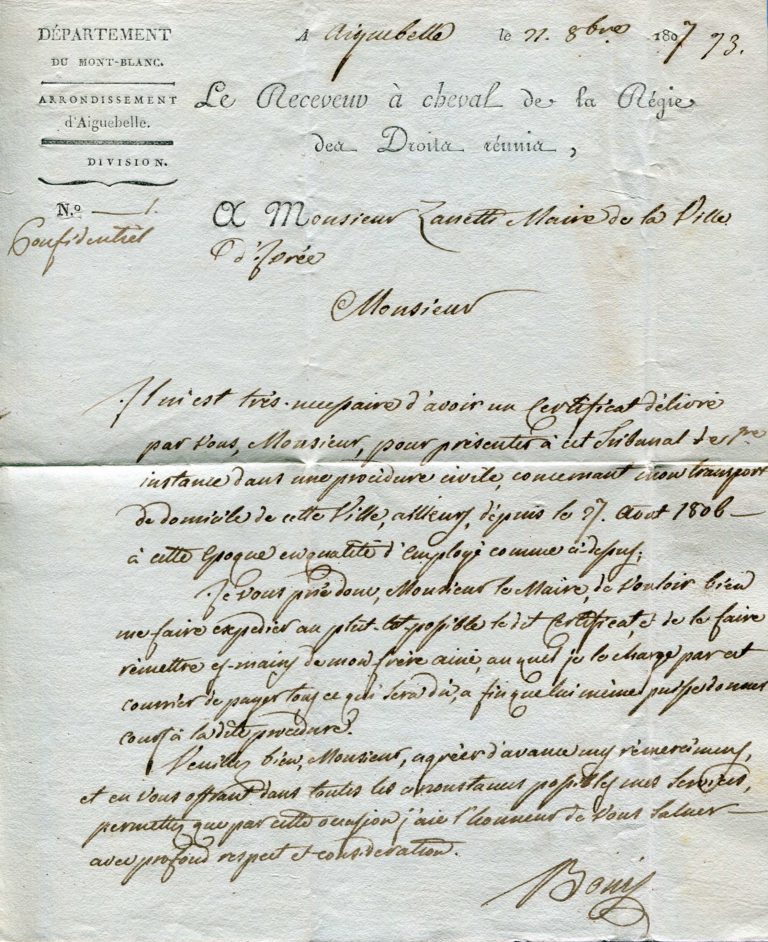 DÉPARTEMENT
DU MONT-BLANC.
ARRONDISSEMENT
d'Aiguebelle.
DIVISION.
N.º 1.
Confidentiel
A Aiguebelle le 8bre 1807
73.
Le Receveur à cheval de la Régie
des Droits réunis,
A Monsieur Zanetti Maire de la Ville
d'Ivrée
Monsieur
Il m'est très-necessaire d'avoir un Certificat délivré
par vous, Monsieur, pour présenter à cet Tribunal de 1re
instance dans une procédure civile, concernant mon transport
de domicile de cette Ville, allieurs, dépuis le 27. Aout 1806
à cette époque en qualité d'Employé comme ci-dessus.
Je vous prie donc, Monsieur le Maire, de vouloir bien
me faire expedier au plut-tot possible le dit Certificat, é de le faire
rémettre es-mains de mon frère ainé, au quel je le charge par cet
courrier de payer tous ce qui sera dû, a fin que lui même puisse donner
cours à la dite procédure.
Veuilles bien, Monsieur, agréer d'avance mes rémercimens,
et en vous offrant dans toutes les circonstances possibles mes services,
permettes que par cette occasion j'aie l'honneur de vous saluer
avec profond respect et consideration.